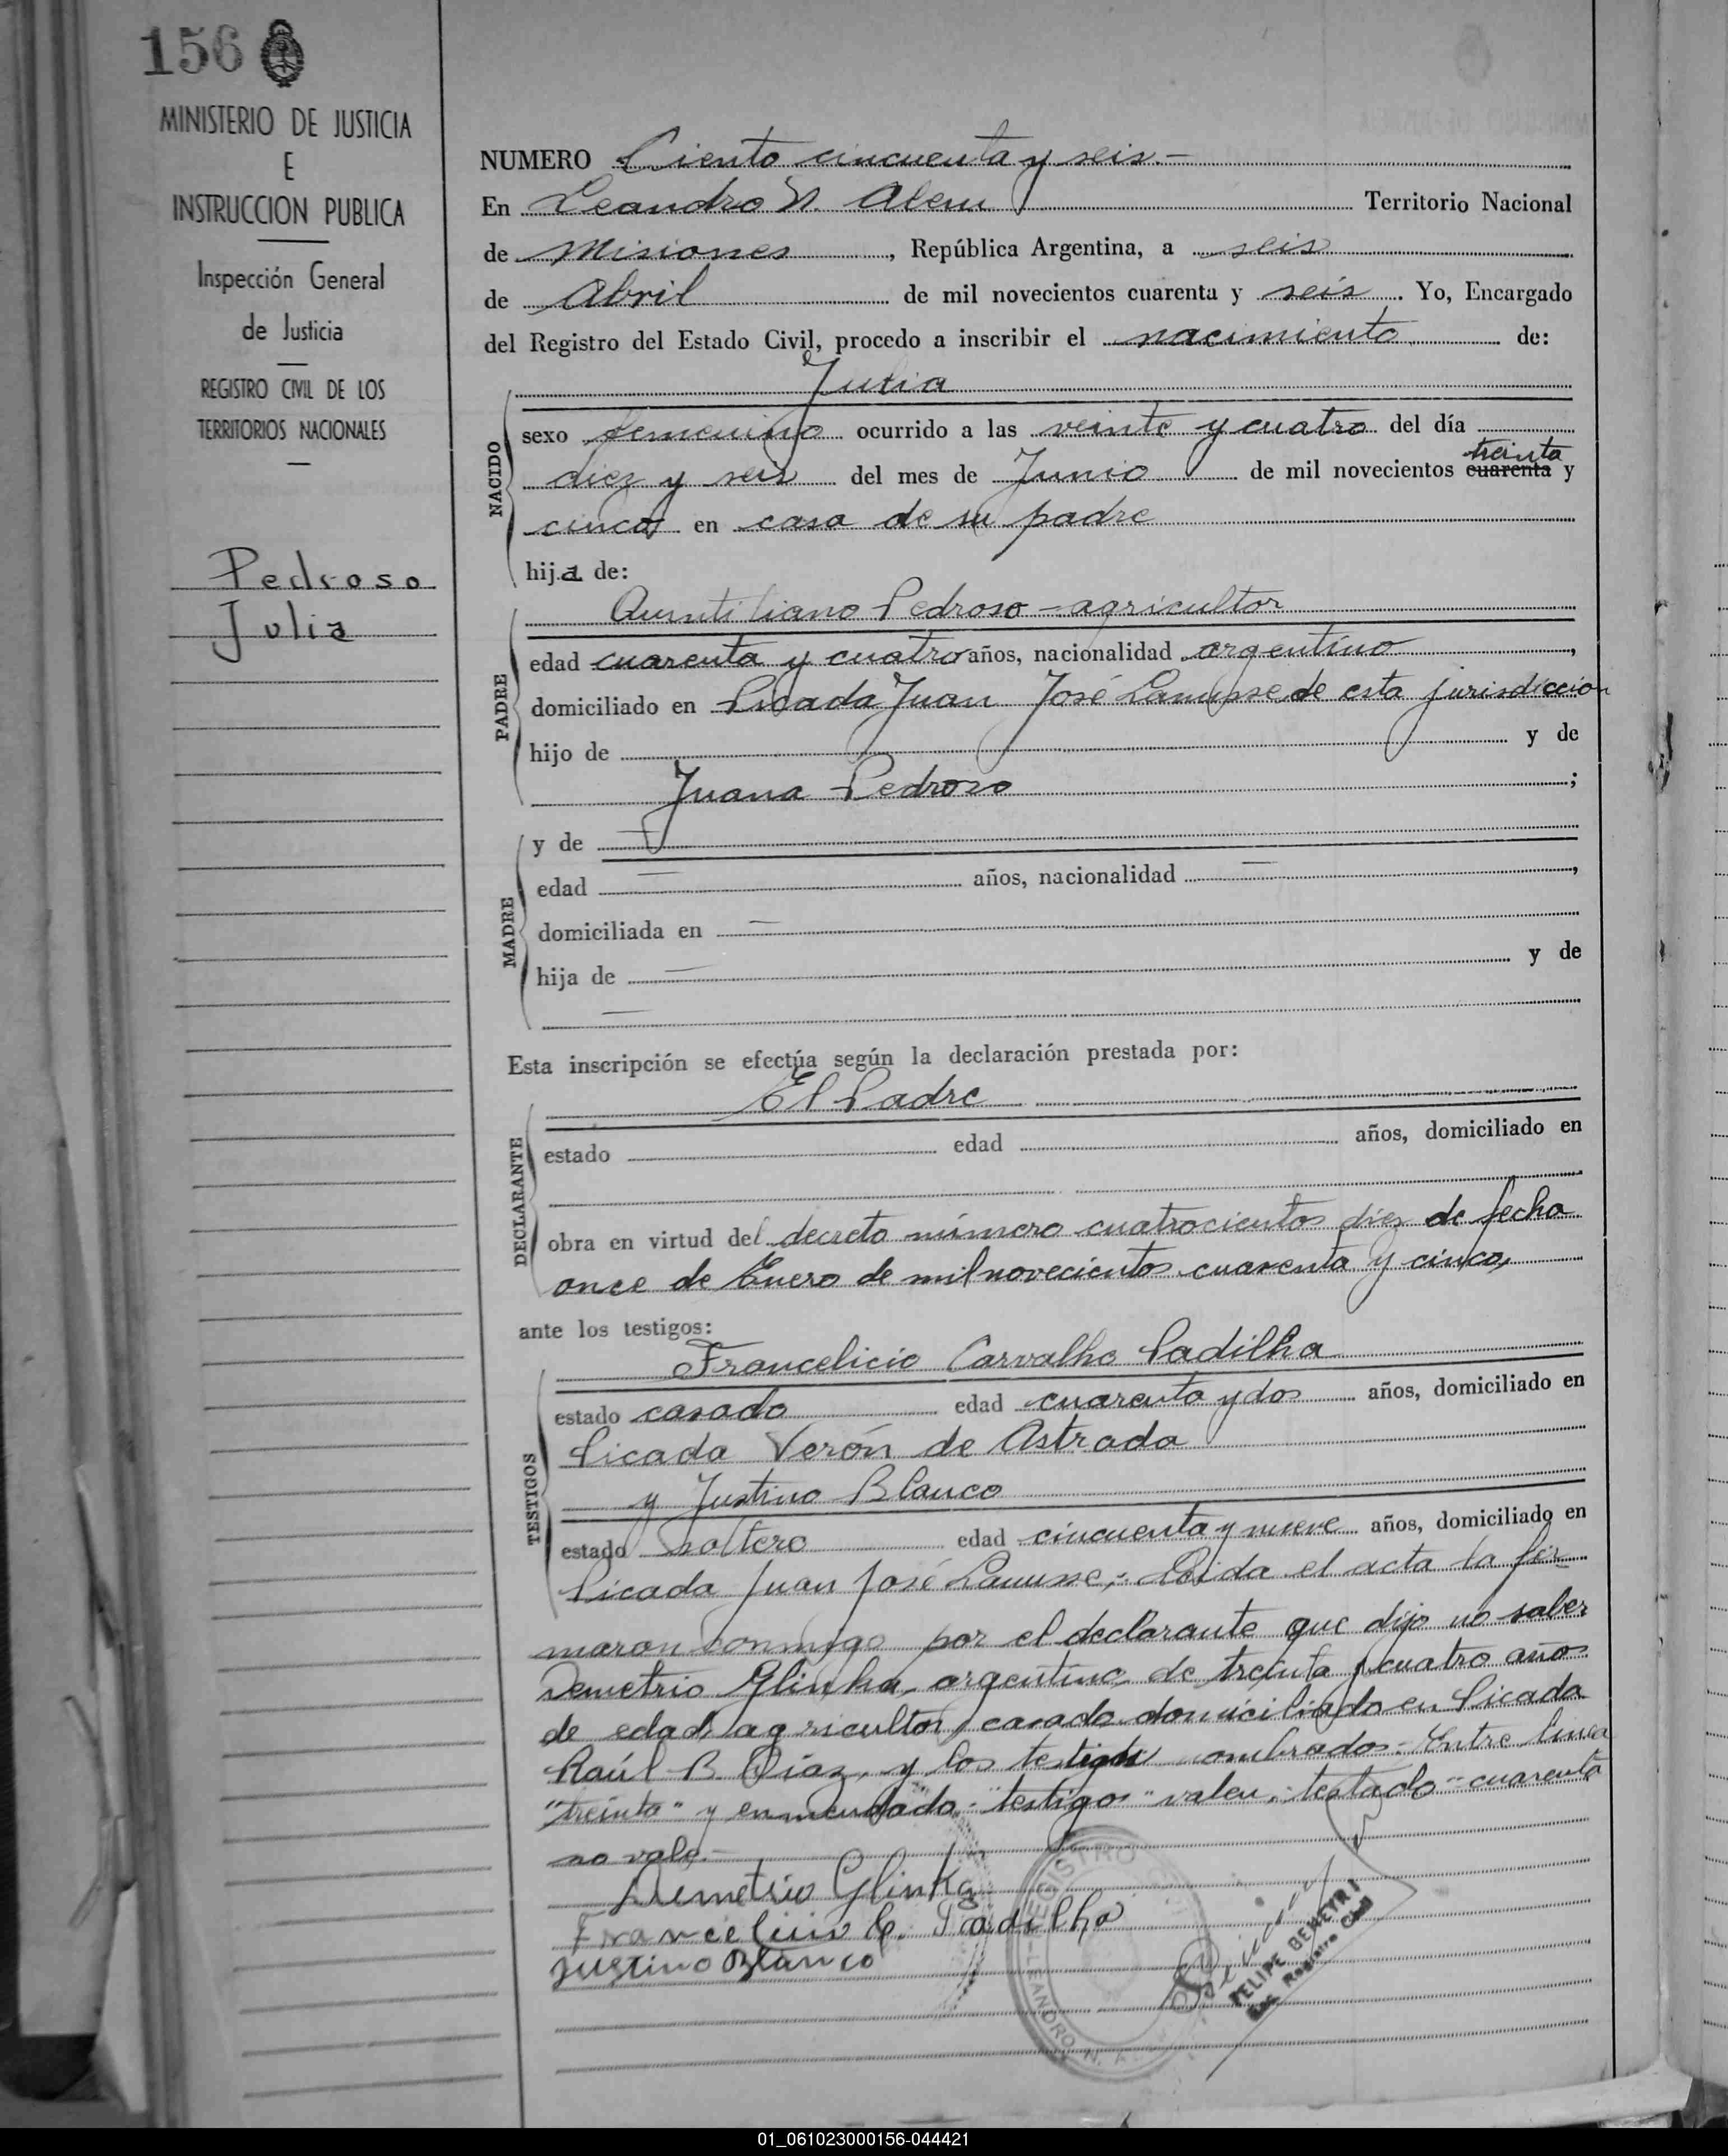 156
MINISTERIO DE JUSTICIA
E
INSTRUCCION PUBLICA
Inspección General
de Justicia
REGISTRO CIVIL DE LOS
TERRITORIOS NACIONALES
Pedroso
Julia
NUMERO Ciento cincuenta y seis.-
En Leandro N. Alem Territorio Nacional
de Misiones, República Argentina, a seis
de Abril de mil novecientos cuarenta y seis. Yo, Encargado
del Registro del Estado Civil, procedo a inscribir el nacimiento de:
Julia
NACIDO
sexo femenino ocurrido a las veinte y cuatro del día
diez y seis del mes de Junio de mil novecientos cuarenta treinta y
cinco en casa de su padre
hija de:
PADRE
Quintiliano Pedroso - agricultor
edad cuarenta y cuatro años, nacionalidad argentino,
domiciliado en Picada Juan José Lanusse de esta jurisdiccion
hijo de y de
Juana Pedroso;
MADRE
y de —
edad — años, nacionalidad —,
domiciliada en —
hija de — y de
—
Esta inscripción se efectúa según la declaración prestada por:
DECLARANTE
El Padre
estado edad años, domiciliado en
obra en virtud del decreto número cuatrocientos diez de fecha
once de Enero de mil novecientos cuarenta y cinco,
ante los testigos:
TESTIGOS
Francelicio Carvalho Padilha
estado casado edad cuarenta y dos años, domiciliado en
Picada Verón de Astrada
y Justino Blanco
estado soltero edad cincuenta y nueve años, domiciliado en
Picada Juan José Lanusse,- Leida el acta la fir
maron conmigo por el declarante que dijo no saber
Demetrio Glinka, argentino, de treinta y cuatro años
de edad, agricultor, casado domiciliado en Picada
Raúl B Díaz, y los testigos nombrados.- Entre linea
"treinta" y enmendado.- "testigos" valen.- testado "cuarenta
no vale.-
Demetrio Glinka
Francelicio C. Padilha
Justino Blanco
REGISTRO
LEANDRO N. A
FELIPE BENEYRI
Enc. Registro Civil
01_061023000156-044421